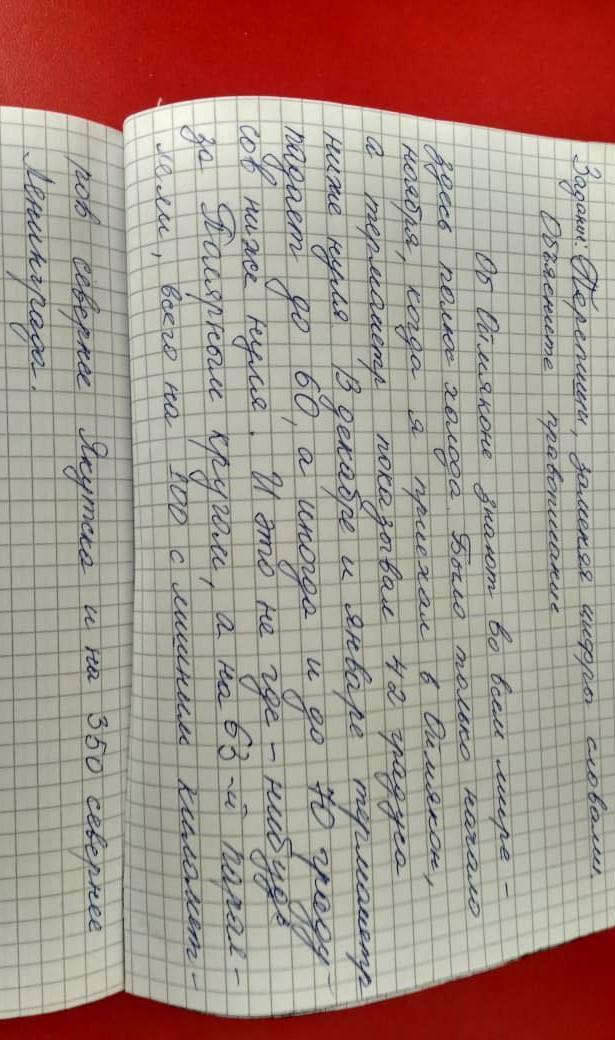 Задани: Перепиши, заменяя цифры словами.
Объясните правописание
Об Оймяконе знают во всем мире -
здесь полюс холода. Было только начало
ноября, когда я приехал в Оймякон,
а термометр показывал 42 градуса
ниже нуля. В декабре и январе термометр
падает до 60, а иногда и до 70 граду-
сов ниже нуля. И это не где-нибудь
за Полярным кругом, а на 63-й парал-
лели, всего на 100 с лишним километ-
ров севернее Якутска и на 350 севернее
Ленинграда.